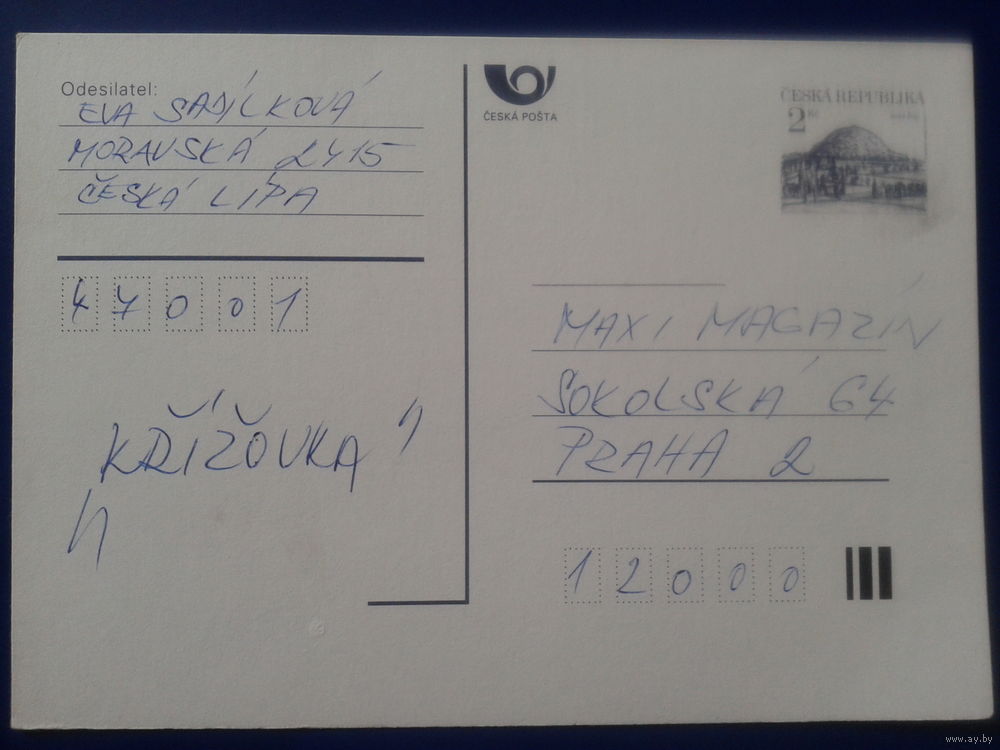 Odesilatel:
EVA SADÍLKOVÁ
MORAVSKÁ 2415
ČESKÁ LÍPA
47001
„KŘÍŽOVKA"
ČESKÁ POŠTA
ČESKÁ REPUBLIKA
2 Kč
MAXI MAGAZÍN
SOKOLSKÁ 64
PRAHA 2
12000
www.ay.by